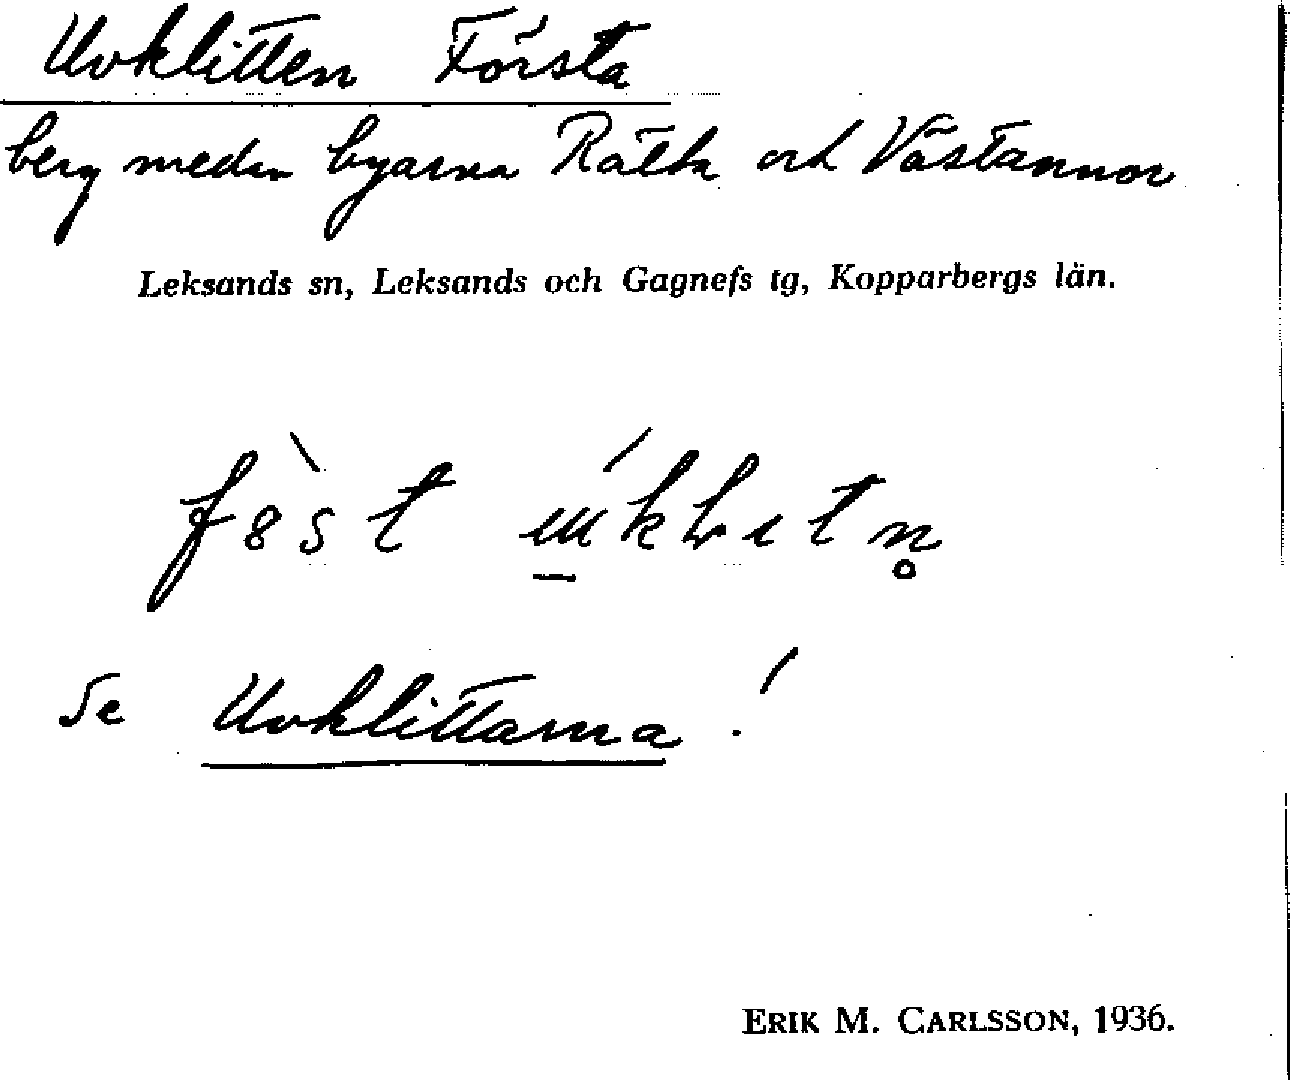 Uvklitten Första
berg mellan byarna Rältа och Västannor
Leksands sn, Leksands och Gagnefs tg, Kopparbergs län.
Se Uvklittarna!
ERIK M. CARLSSON, 1936.